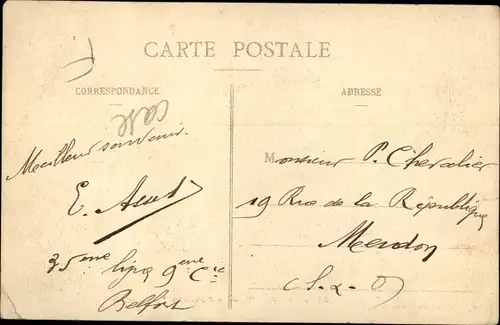 CARTE POSTALE
CORRESPONDANCE
ADRESSE
Meilleur souvenir.
E.
35ème ligne 9ème Cie
Belfort
Monsieur P. Chevalier
19 Rue de la République
Meudon
(S. & O)